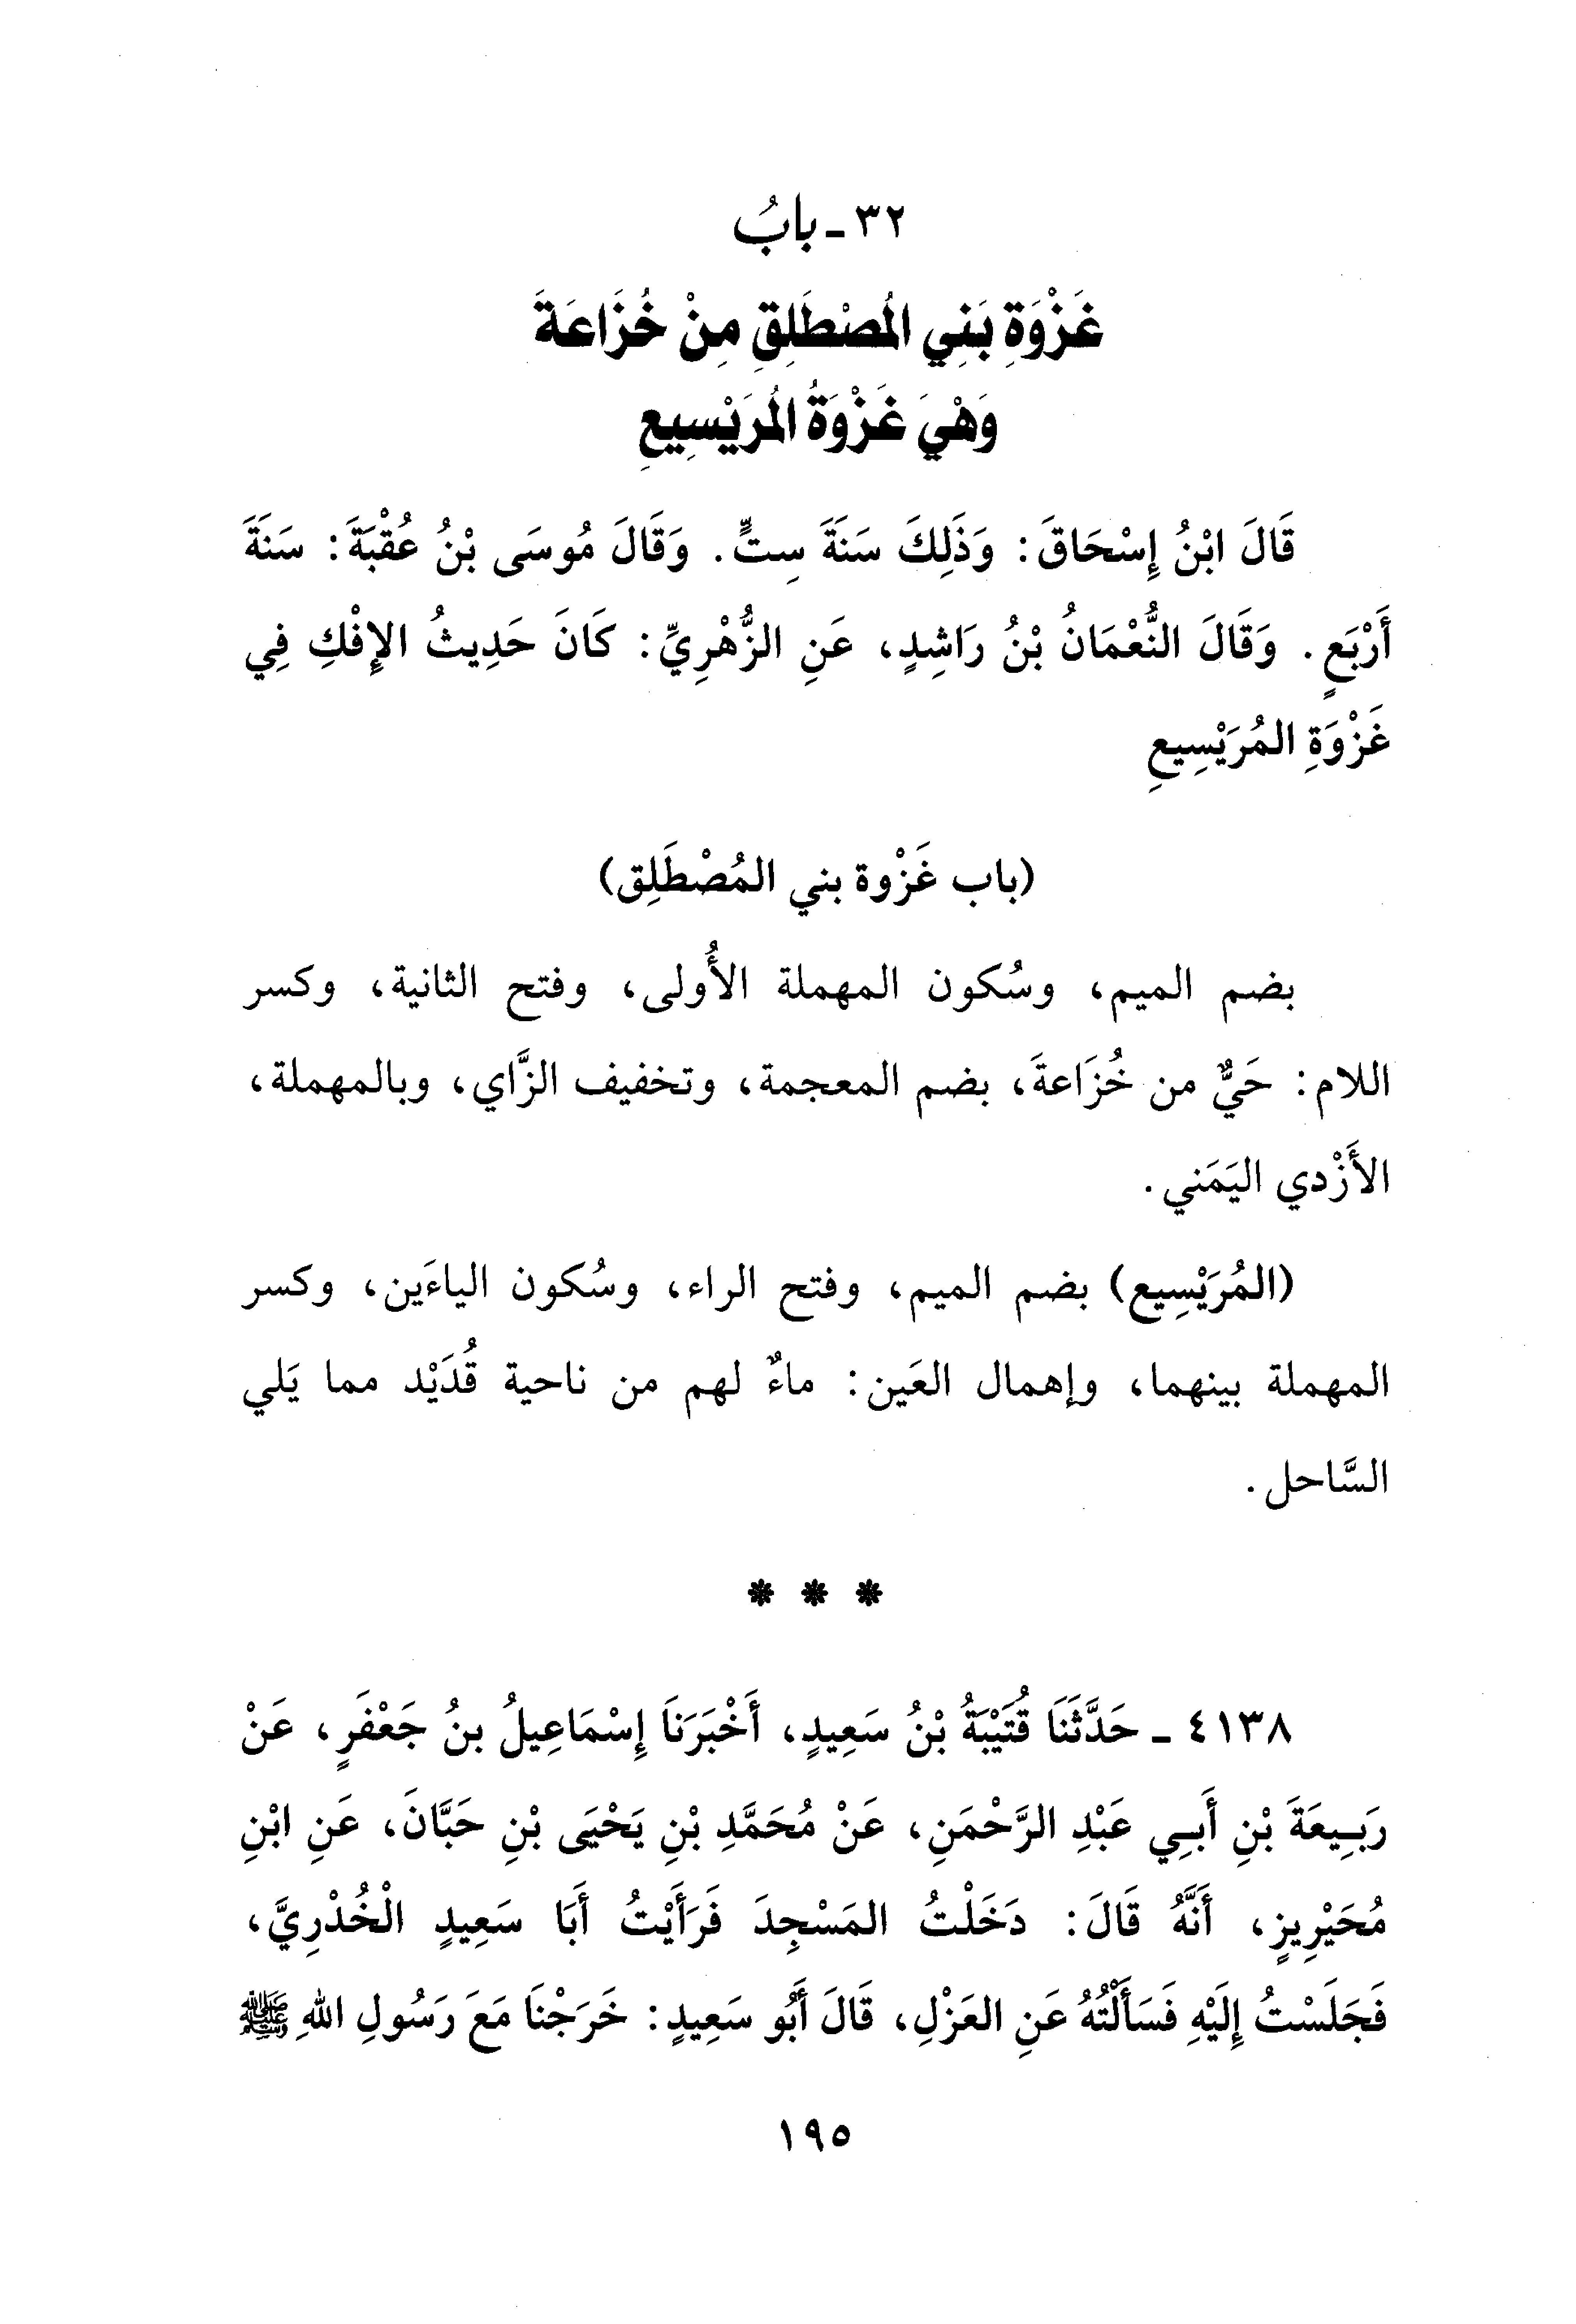 ٣٢ - بابُ
غَزْوَةِ بَنِي المُصْطَلِقِ مِنْ خُزَاعَةَ
وَهْيَ غَزْوَةُ المُرَيْسِيعِ
قَالَ ابْنُ إِسْحَاقَ: وَذَلِكَ سَنَةَ سِتٍّ. وَقَالَ مُوسَى بْنُ عُقْبَةَ: سَنَةَ
أَرْبَعٍ. وَقَالَ النُّعْمَانُ بْنُ رَاشِدٍ، عَنِ الزُّهْرِيِّ: كَانَ حَدِيثُ الإِفْكِ فِي
غَزْوَةِ المُرَيْسِيعِ
(باب غَزْوة بني المُصْطَلِق)
بضم الميم، وسُكون المهملة الأُولى، وفتح الثانية، وكسر
اللام: حَيٌّ من خُزَاعةَ، بضم المعجمة، وتخفيف الزَّاي، وبالمهملة،
الأَزْدي اليَمَني.
(المُرَيْسِيع) بضم الميم، وفتح الراء، وسُكون الياءَين، وكسر
المهملة بينهما، وإهمال العَين: ماءٌ لهم من ناحية قُدَيْد مما يَلي
السَّاحل.
* * *
٤١٣٨ - حَدَّثَنَا قُتَيْبَةُ بْنُ سَعِيدٍ، أَخْبَرَنَا إِسْمَاعِيلُ بنُ جَعْفَرٍ، عَنْ
رَبِيعَةَ بْنِ أَبِي عَبْدِ الرَّحْمَنِ، عَنْ مُحَمَّدِ بْنِ يَحْيَى بْنِ حَبَّانَ، عَنِ ابْنِ
مُحَيْرِيزٍ، أَنَّهُ قَالَ: دَخَلْتُ المَسْجِدَ فَرَأَيْتُ أَبَا سَعِيدٍ الْخُدْرِيَّ،
فَجَلَسْتُ إِلَيْهِ فَسَأَلْتُهُ عَنِ العَزْلِ، قَالَ أَبُو سَعِيدٍ: خَرَجْنَا مَعَ رَسُولِ اللهِ ﷺ
١٩٥